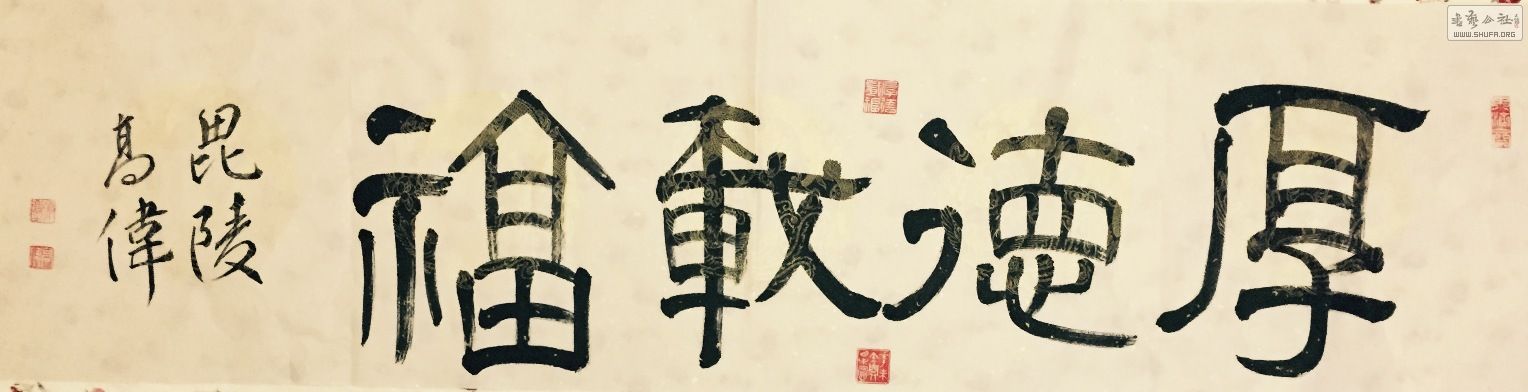 厚德載福
毘陵
高偉
書藝公社
WWW.SHUFA.ORG